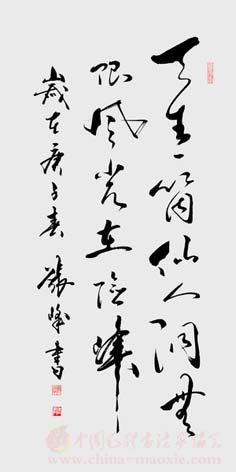 天生一个仙人洞无
限风光在险峰
岁在庚子春 张峰书
www.china-maoxie.com